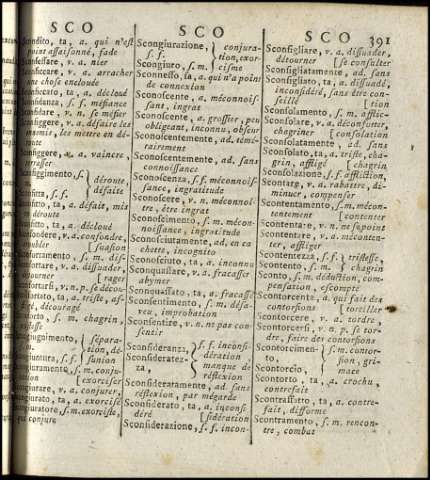 SCO
SCO
SCO
391
ndito, ta, a. qui n'est
point assaisonné, fade
nfessare, v. a. nier
nficcare, v. a. arracher
une chose enclouée
nficcato, ta, a. décloué
nfidanza, s. f. méfiance
nfidare, v. n. se méfier
nfiggere, v. a. défaire les
ennemis, les mettre en dé-
route
nfiggere, v. a. vaincre,
nfiggimento, s. }  déroute,
nfitta, s. f. }  défaite
nfitto, ta, a. défait, mis
en déroute
nfitto, ta, a. décloué
nfondere, v. a. confondre,
troubler [suasion
nfortamento, s. m. dis-
nfortare, v. a. dissuader,
détourner [rager
nfortarsi, v. n. p. se décou-
nfortato, ta, a. triste, af-
fligé, découragé
nforto, s. m. chagrin,
tristesse
ngiugnimento, } sépara-
tion, dé-
ngiuntura, s. f. } sunion
ngiuramento, s. m. conju-
[exorciser
ngiurare, v. a. conjurer,
ngiurato, ta, a. exorcisé
ngiuratore, s. m. exorciste,
qui conjure
Scongiurazione, } conjura-
s. f. tion, exor-
Scongiuro, s. m. } cisme
Sconnesso, sa, a. qui n'a point
de connexion
Sconoscente, a. méconnois-
sant, ingrat
Sconoscente, a. grossier, peu
obligeant, inconnu, obscur
Sconoscentemente, ad. témé-
rairement
Sconoscentemente, ad. sans
connoissance
Sconoscenza, s. f. méconnois-
sance, ingratitude
Sconoscere, v. n. méconnoî-
tre, être ingrat
Sconoscimento, s. m. mécon-
noissance, ingratitude
Sconosciutamente, ad. en ca
chette, incognito
Sconosciuto, ta, a. inconnu
Sconquassare, v. a. fracasser
abymer
Sconquassato, ta, a. fracassé
Sconsentimento, s. m. désa-
veu, improbation
Sconsentire, v. n. ne pas con-
sentir
Sconsideranza, } s. f. inconsi-
Sconsideratez- dération,
za, } manque de
réflexion
Sconsideratamente, ad. sans
réflexion, par mégarde
Sconsiderato, ta, a. inconsi
déré [sidération
Sconsiderazione, s. f. incon-
Sconsigliare, v. a. dissuader,
détourner [se consulter
Sconsigliatamente, ad. sans
Sconsigliato, ta, a. dissuadé,
inconsidéré, sans être con-
seillé [tion
Sconsolamento, s. m. afflic-
Sconsolare, v. a. déconforter,
chagriner [consolation
Sconsolatamente, ad. sans
Sconsolato, ta, a. triste, cha-
grin, affligé [chagrin
Sconsolazione, s. f. affliction,
Scontare, v. a. rabattre, di-
minuer, compenser
Scontentamento, s. m. mécon-
tentement [contenter
Scontentare, v. n. ne se point
Scontentare, v. a. méconten-
ter, affliger
Scontentezza, s. f. } tristesse,
Scontento, s. m. } chagrin
Sconto, s. m. déduction, com-
pensation, escompte
Scontorcente, a. qui fait des
contorsions [tortiller
Scontorcere, v. a. tordre,
Scontorcersi, v. n. p. se tor-
dre, faire des contorsions
Scontorcimen- } s. m. contor-
to, sion, gri-
Scontorcio, } mace
Scontorto, ta, a. crochu,
contrefait
Scontraffatto, ta, a. contre-
fait, difforme
Scontramento, s. m. rencon-
tre, combat